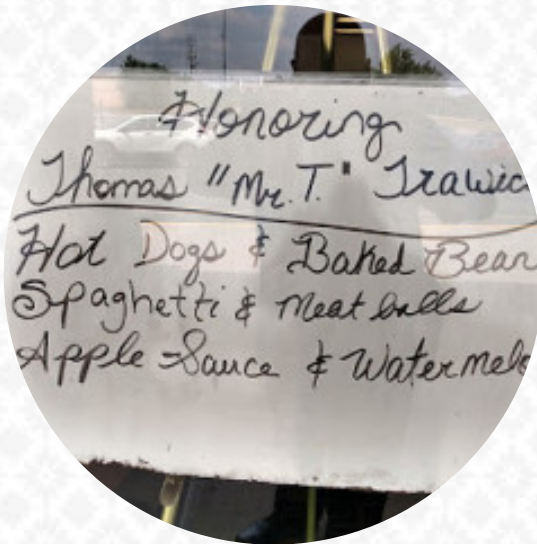 Honoring
Thomas "Mr. T." Trawic
Hot Dogs & Baked Bean
Spaghetti & Meat balls
Apple Sauce & Watermel